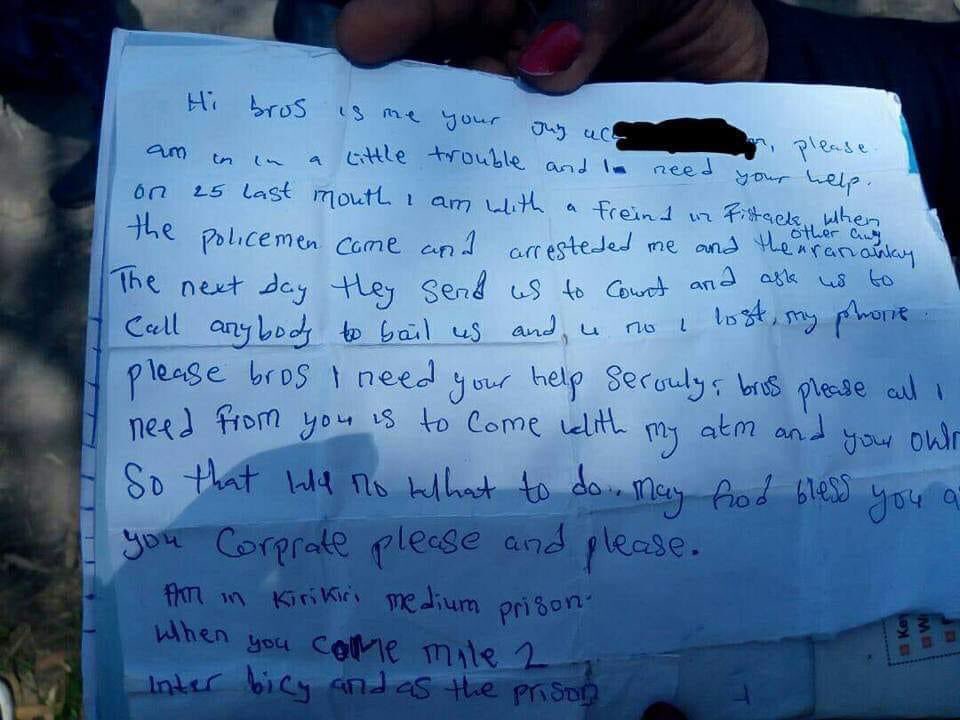 Hi bros is me your guy , please
am in in a little trouble and I need your help.
on 25 last mouth i am with a freind in Fistack, when
the policemen came and arresteded me and the other Guy ran away
The next day they send us to Court and ask us to
Call anybody to bail us and, u no i lost, my phone.
please bros I need your help Serouly; bros please all i
need from you is to Come with my atm and your own
So that we no what to do.. May God bless you a
you Corprate please and please.
Am in Kirikiri medium prison.
When you come mile 2
Inter bicy and as the prison
Key
W